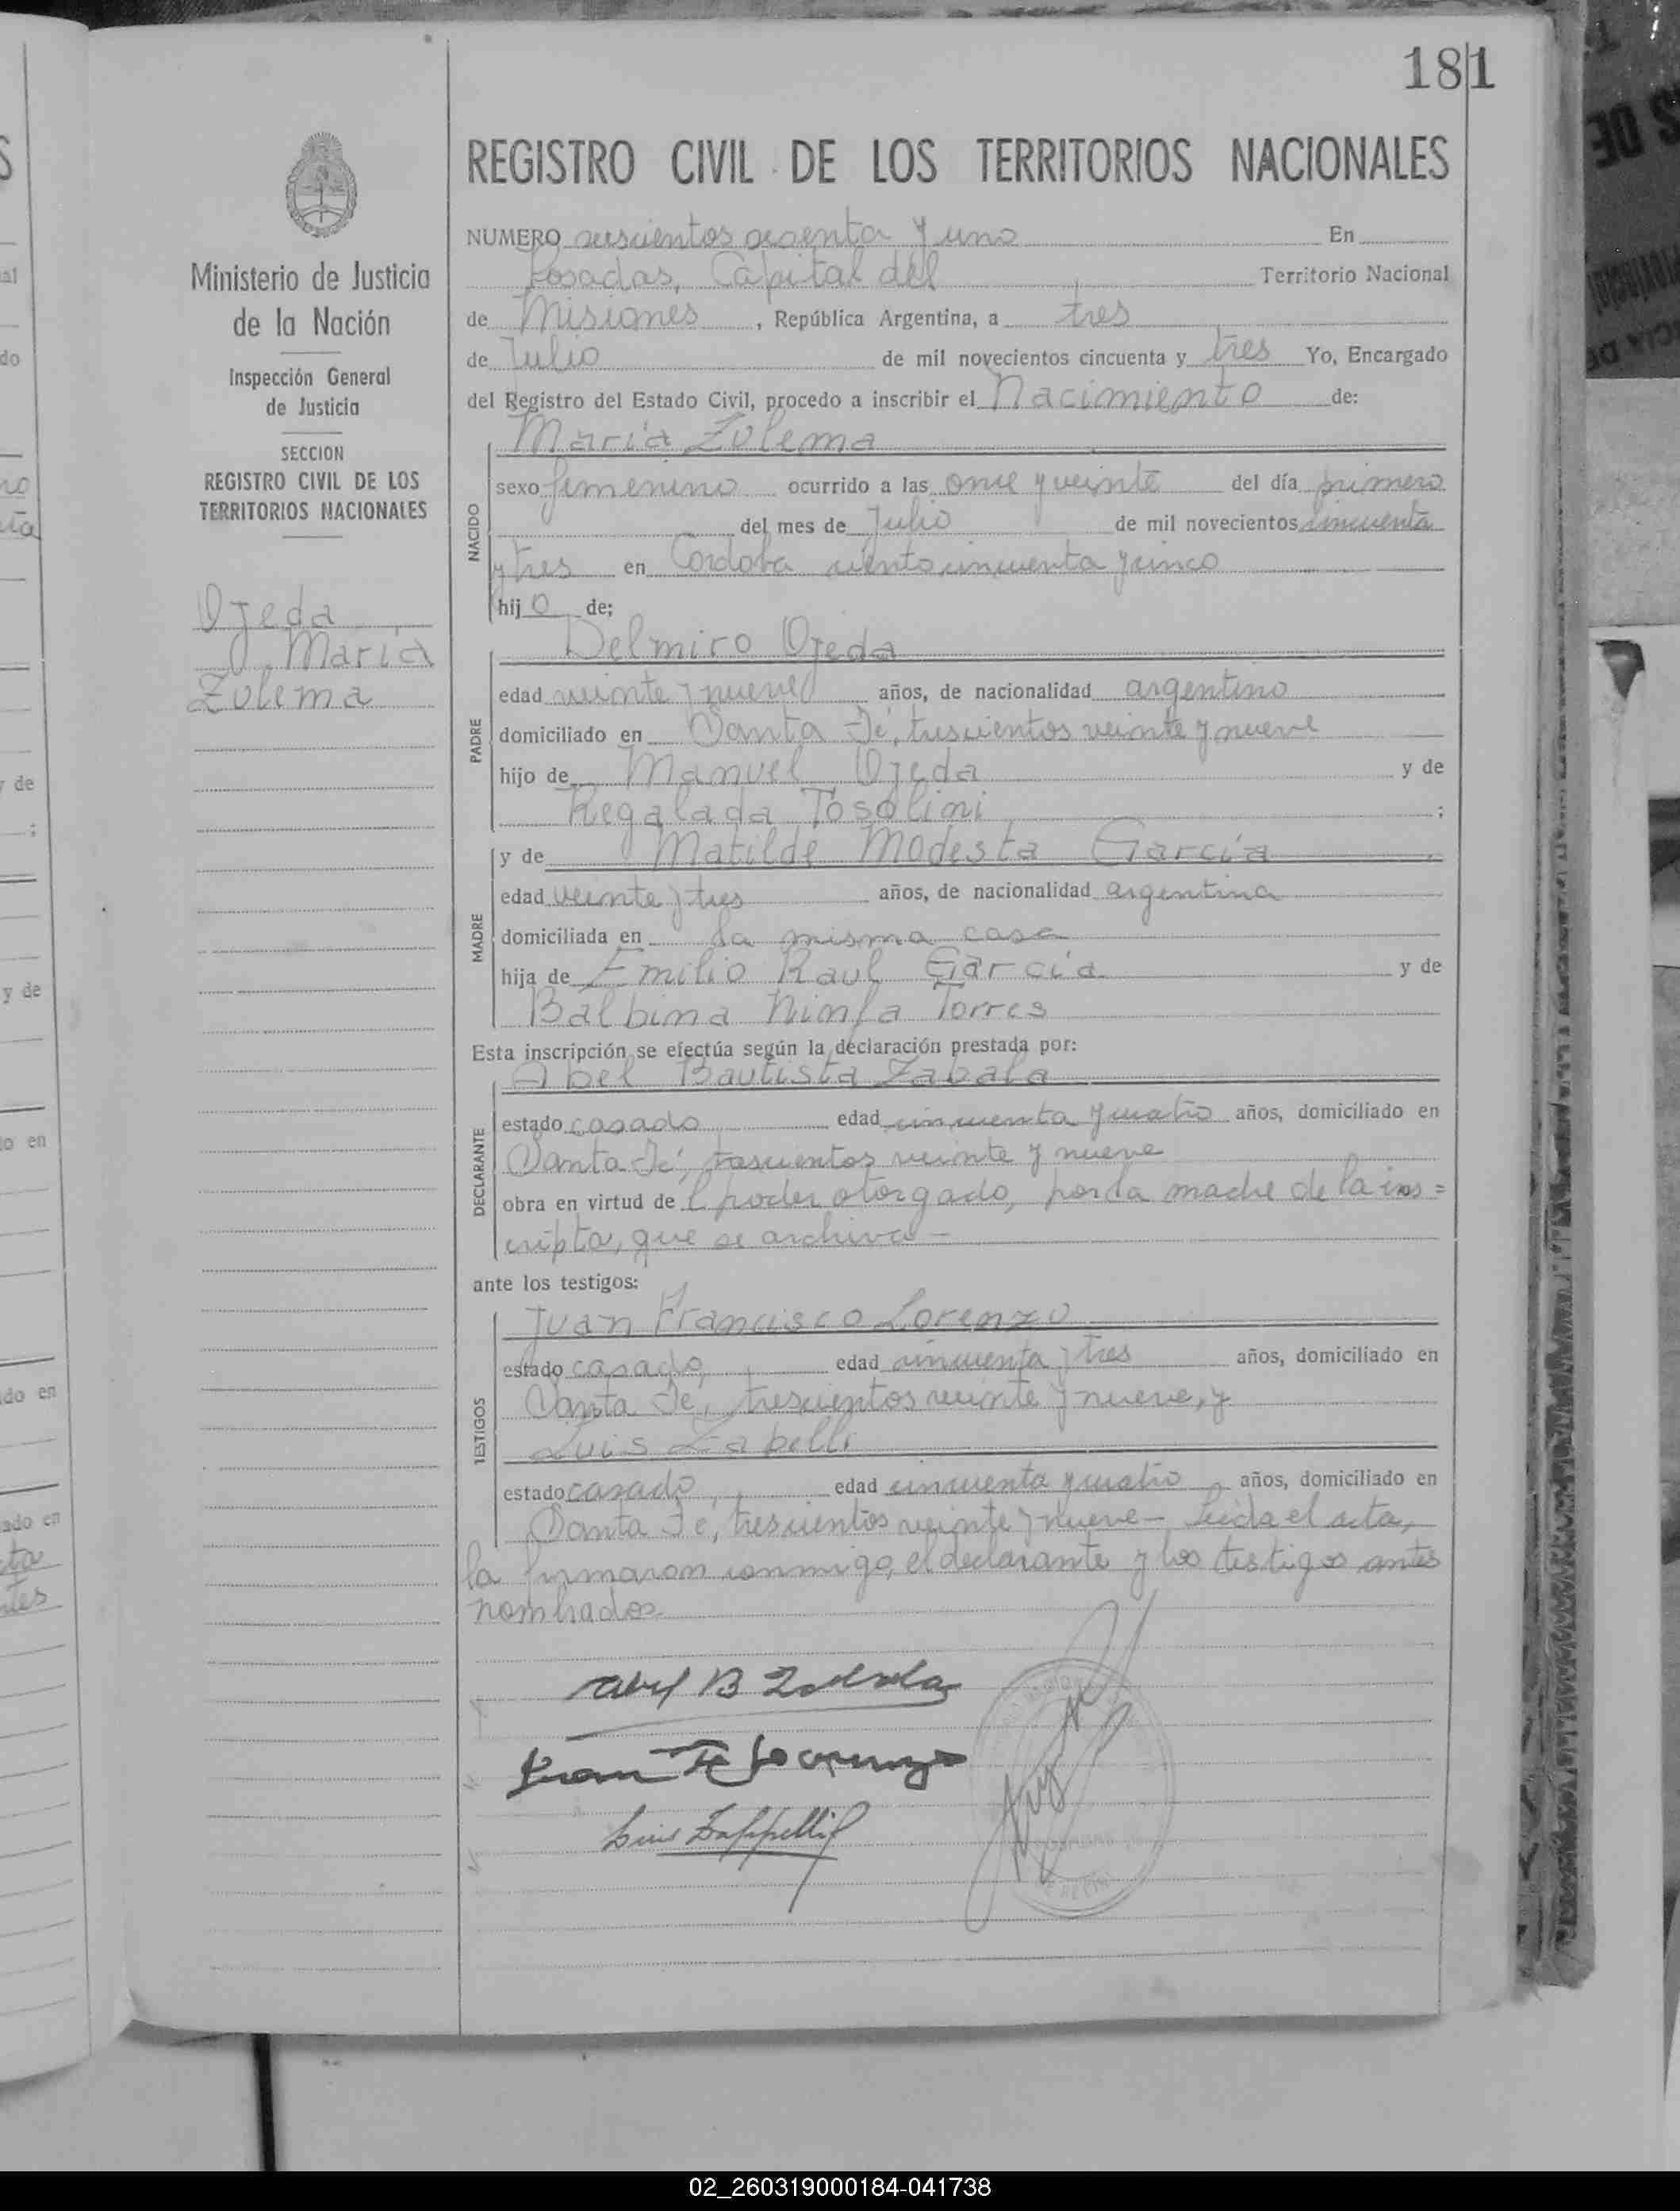 181
REGISTRO CIVIL DE LOS TERRITORIOS NACIONALES
Ministerio de Justicia
de la Nación
Inspección General
de Justicia
SECCION
REGISTRO CIVIL DE LOS
TERRITORIOS NACIONALES
Ojeda
María
Zulema
NUMERO seiscientos sesenta y uno En
Posadas, Capital del Territorio Nacional
de Misiones, República Argentina, a tres
de Julio de mil novecientos cincuenta y tres Yo, Encargado
del Registro del Estado Civil, procedo a inscribir el Nacimiento de:
NACIDO
María Zulema
sexo femenino ocurrido a las once y veinte del día primero
del mes de Julio de mil novecientos cincuenta
y tres en Cordoba ciento cincuenta y cinco
hijo de;
PADRE
Delmiro Ojeda
edad veinte y nueve años, de nacionalidad argentino
domiciliado en Santa Fé, trescientos veinte y nueve
hijo de Manuel Ojeda y de
Regalada Tosolini ;
MADRE
y de Matilde Modesta García
edad veinte y tres años, de nacionalidad argentina
domiciliada en la misma casa
hija de Emilio Raul García y de
Balbina Ninfa Torres
Esta inscripción se efectúa según la declaración prestada por:
DECLARANTE
Abel Bautista Zabala
estado casado edad cincuenta y cuatro años, domiciliado en
Santa Fé, trescientos veinte y nueve
obra en virtud del poder otorgado, por la madre de la ins=
cripta, que se archiva-
ante los testigos:
TESTIGOS
Juan Francisco Lorenzo
estado casado, edad cincuenta y tres años, domiciliado en
Santa Fé, trescientos veinte y nueve, y
Luis Zapelli
estado casado, edad cincuenta y cuatro, años, domiciliado en
Santa Fe, trescientos veinte y nueve- Leida el acta,
la firmaron conmigo, el declarante y los testigos antes
nombrados
Abel B Zabala
Juan F Lorenzo
Luis Zappelli
02_260319000184-041738